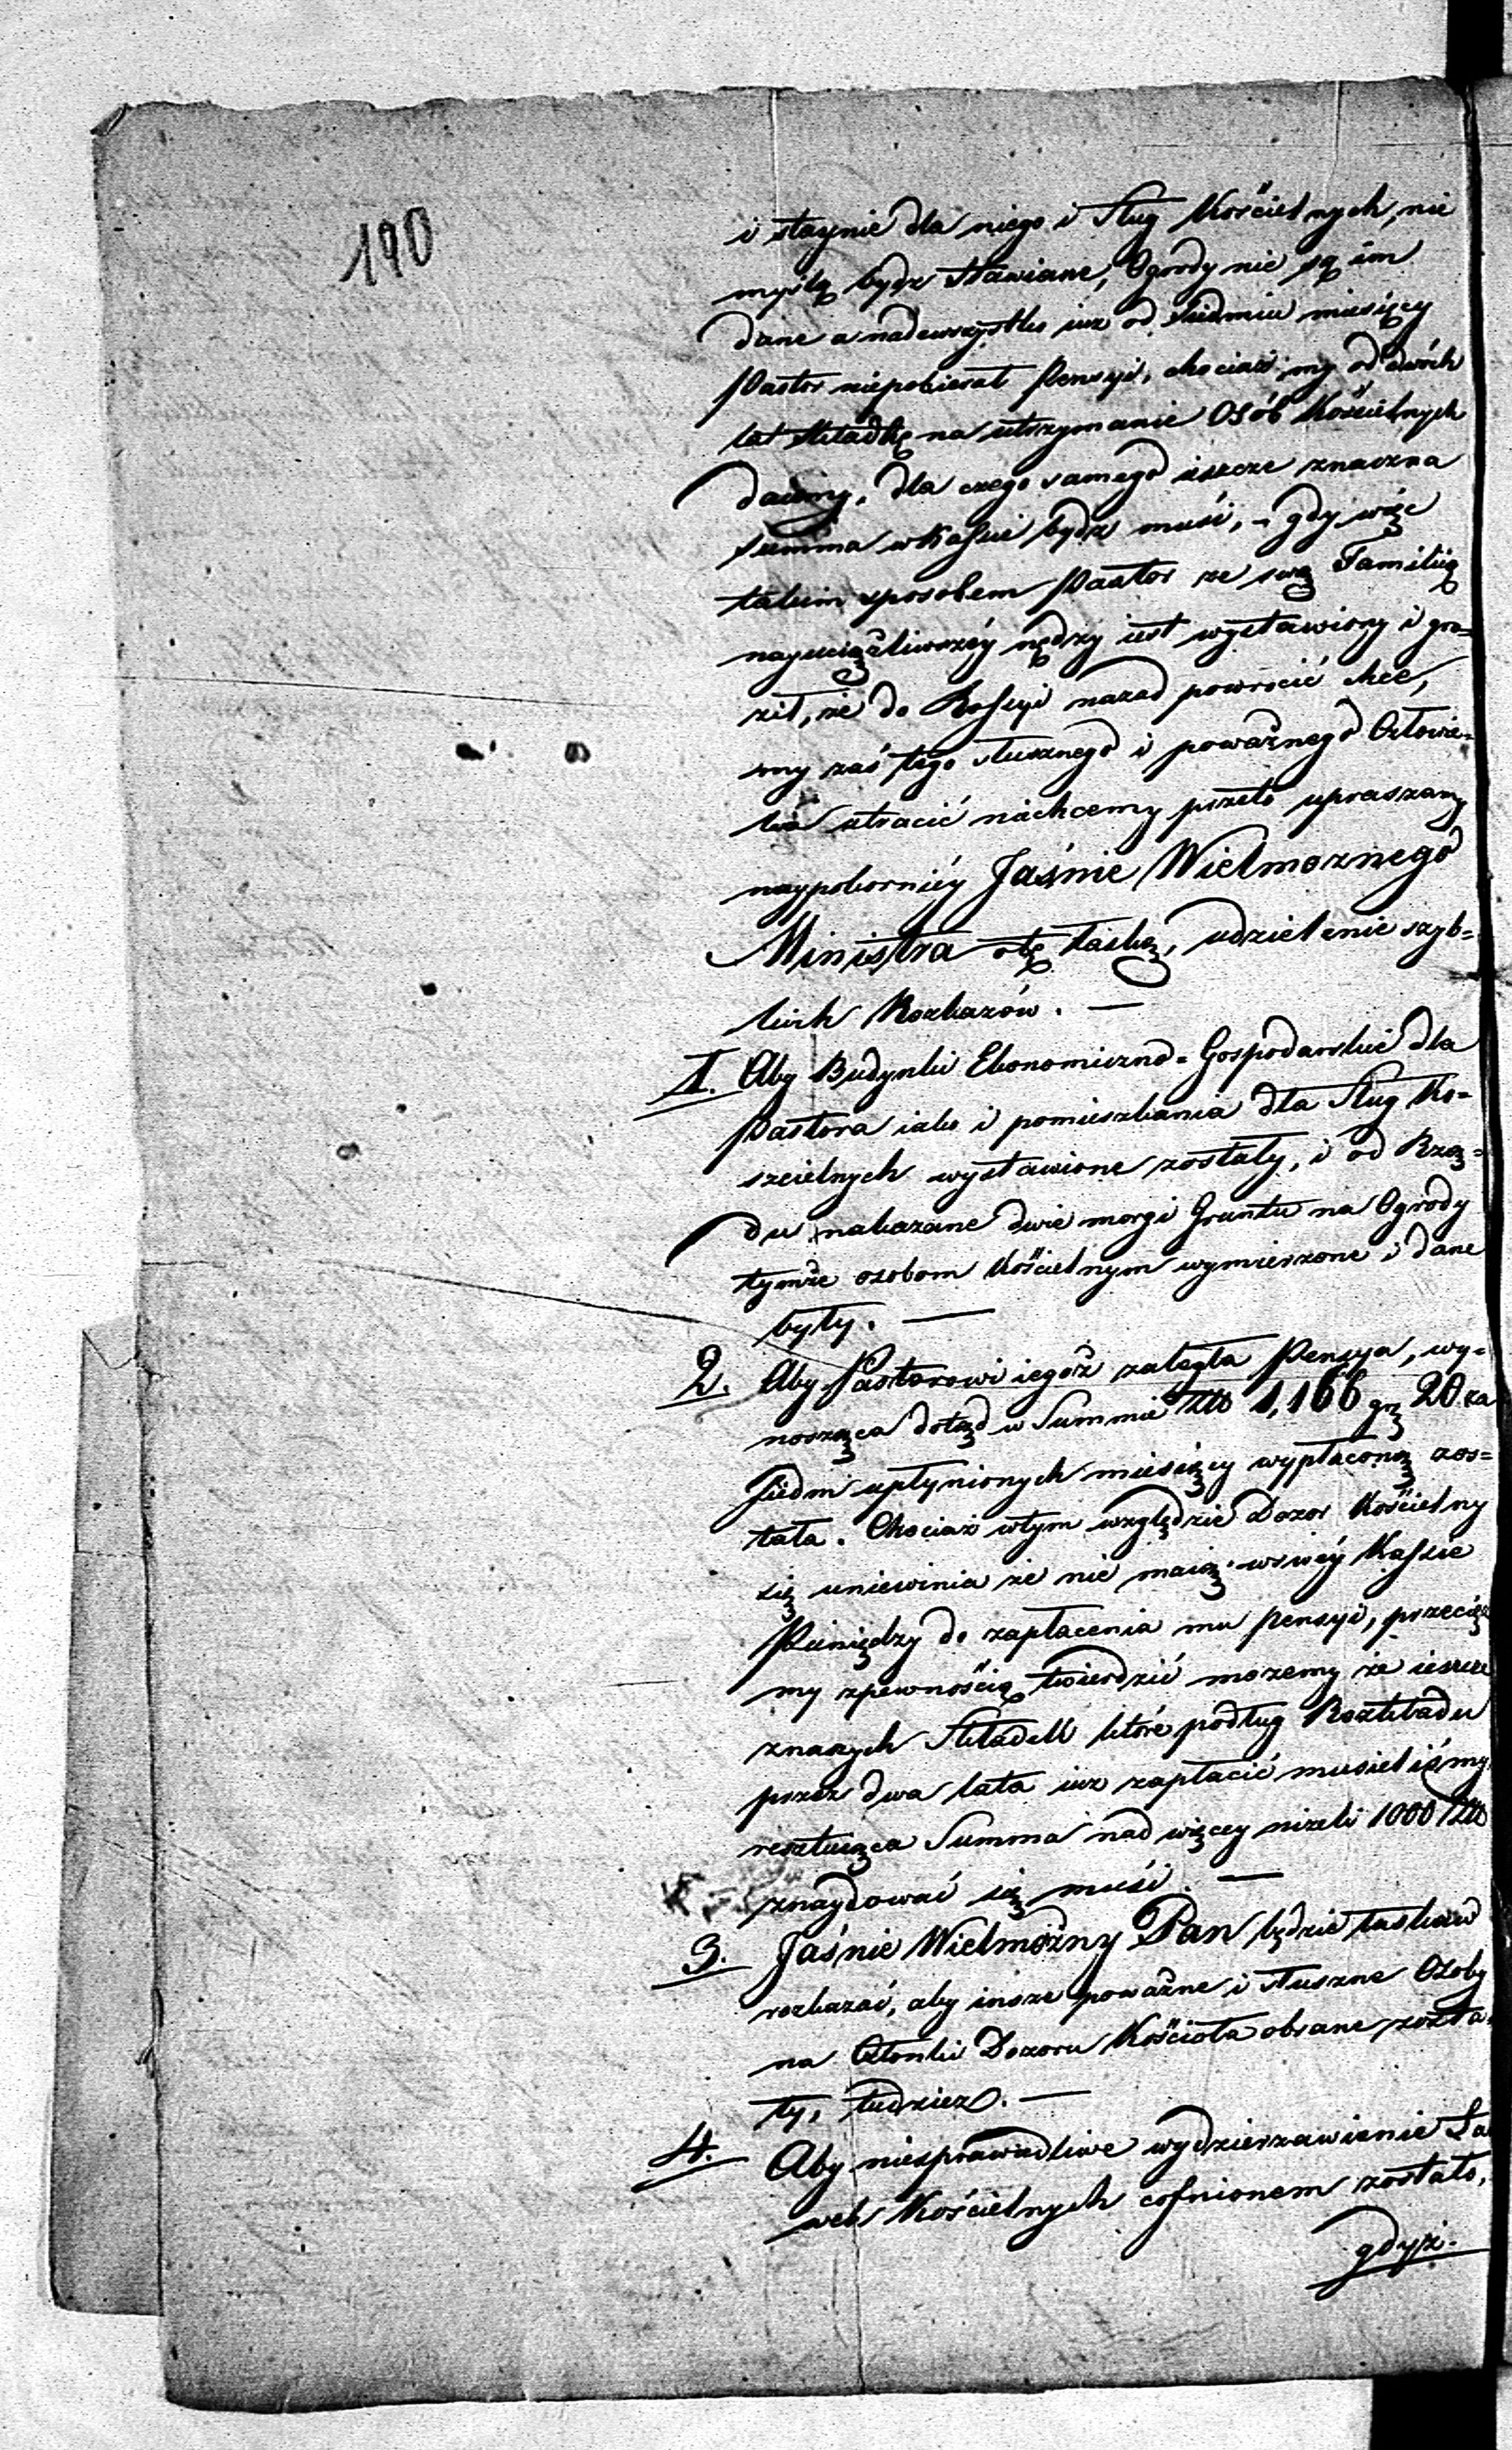 190
i staynie dla niego i Sług Kościelnych, nie
myślą bydz stawiane, Ogrody nie są im
dane a nadewszystko iuz od siedmiu miesięcy
Pastor niepobierał Pensyi, chociaż my od dwóch
lat składkę na utrzymanie Osób Kościelnych
daiemy, dla czego samego ieszcze znaczna
summa w Kassie bydz musi, - gdy więc
takim sposobem Pastor ze swą Familiią
nayuciążliwszéy nędzy iest wystawiony i gro=
ził, że do Rossyi nazad powrócić chce,
my zaś tego słusznego i poważnego Człowie=
ka utracić niechcemy przeto upraszamy
naypokorniéy Jaśnie Wielmoznego
Ministra o tę łaskę, udzielenie szyb=
kich Rozkazów. —
1. Aby Budynki Ekonomiczno=Gospodarskie dla
Pastora iako i pomieszkania dla Sług Ko=
szcielnych wystawione zostały, i od Rzą=
du nakazane dwie morgi Gruntu na Ogrody
tymże osobom Kościelnym wymierzone i dane
były. —
2. Aby Pastorowi iegoż zaległa Pensya, wy=
nosząca dotąd w Summie Złł 1,166 gr 20 za
siedm upłynionych miesięcy wypłaconą zos=
tała. Chociaż wtym względzie Dozor Kościelny
się uniewinia że nie maią wswéy Kassie
Pieniędzy do zapłacenia mu pensyi, przecięż
my zpewnością twierdzić mozemy że ieszcze
znanych Składek które podług Rozkładu
przez dwa lata iuz zapłacić musieliśmy
resztuiąca Summa nad więcey nizeli 1000 Złł
znaydować się musi. —
3. Jaśnie Wielmożny Pan będzie łaskaw
rozkazać, aby insze poważne i słuszne Osoby
na Członki Dozoru Kościoła obrane zosta=
ły, tudziez. —
4. Aby niesprawiedliwe wydzierzawienie Ła
wek Kościelnych cofnionem zostało,
gdyż.